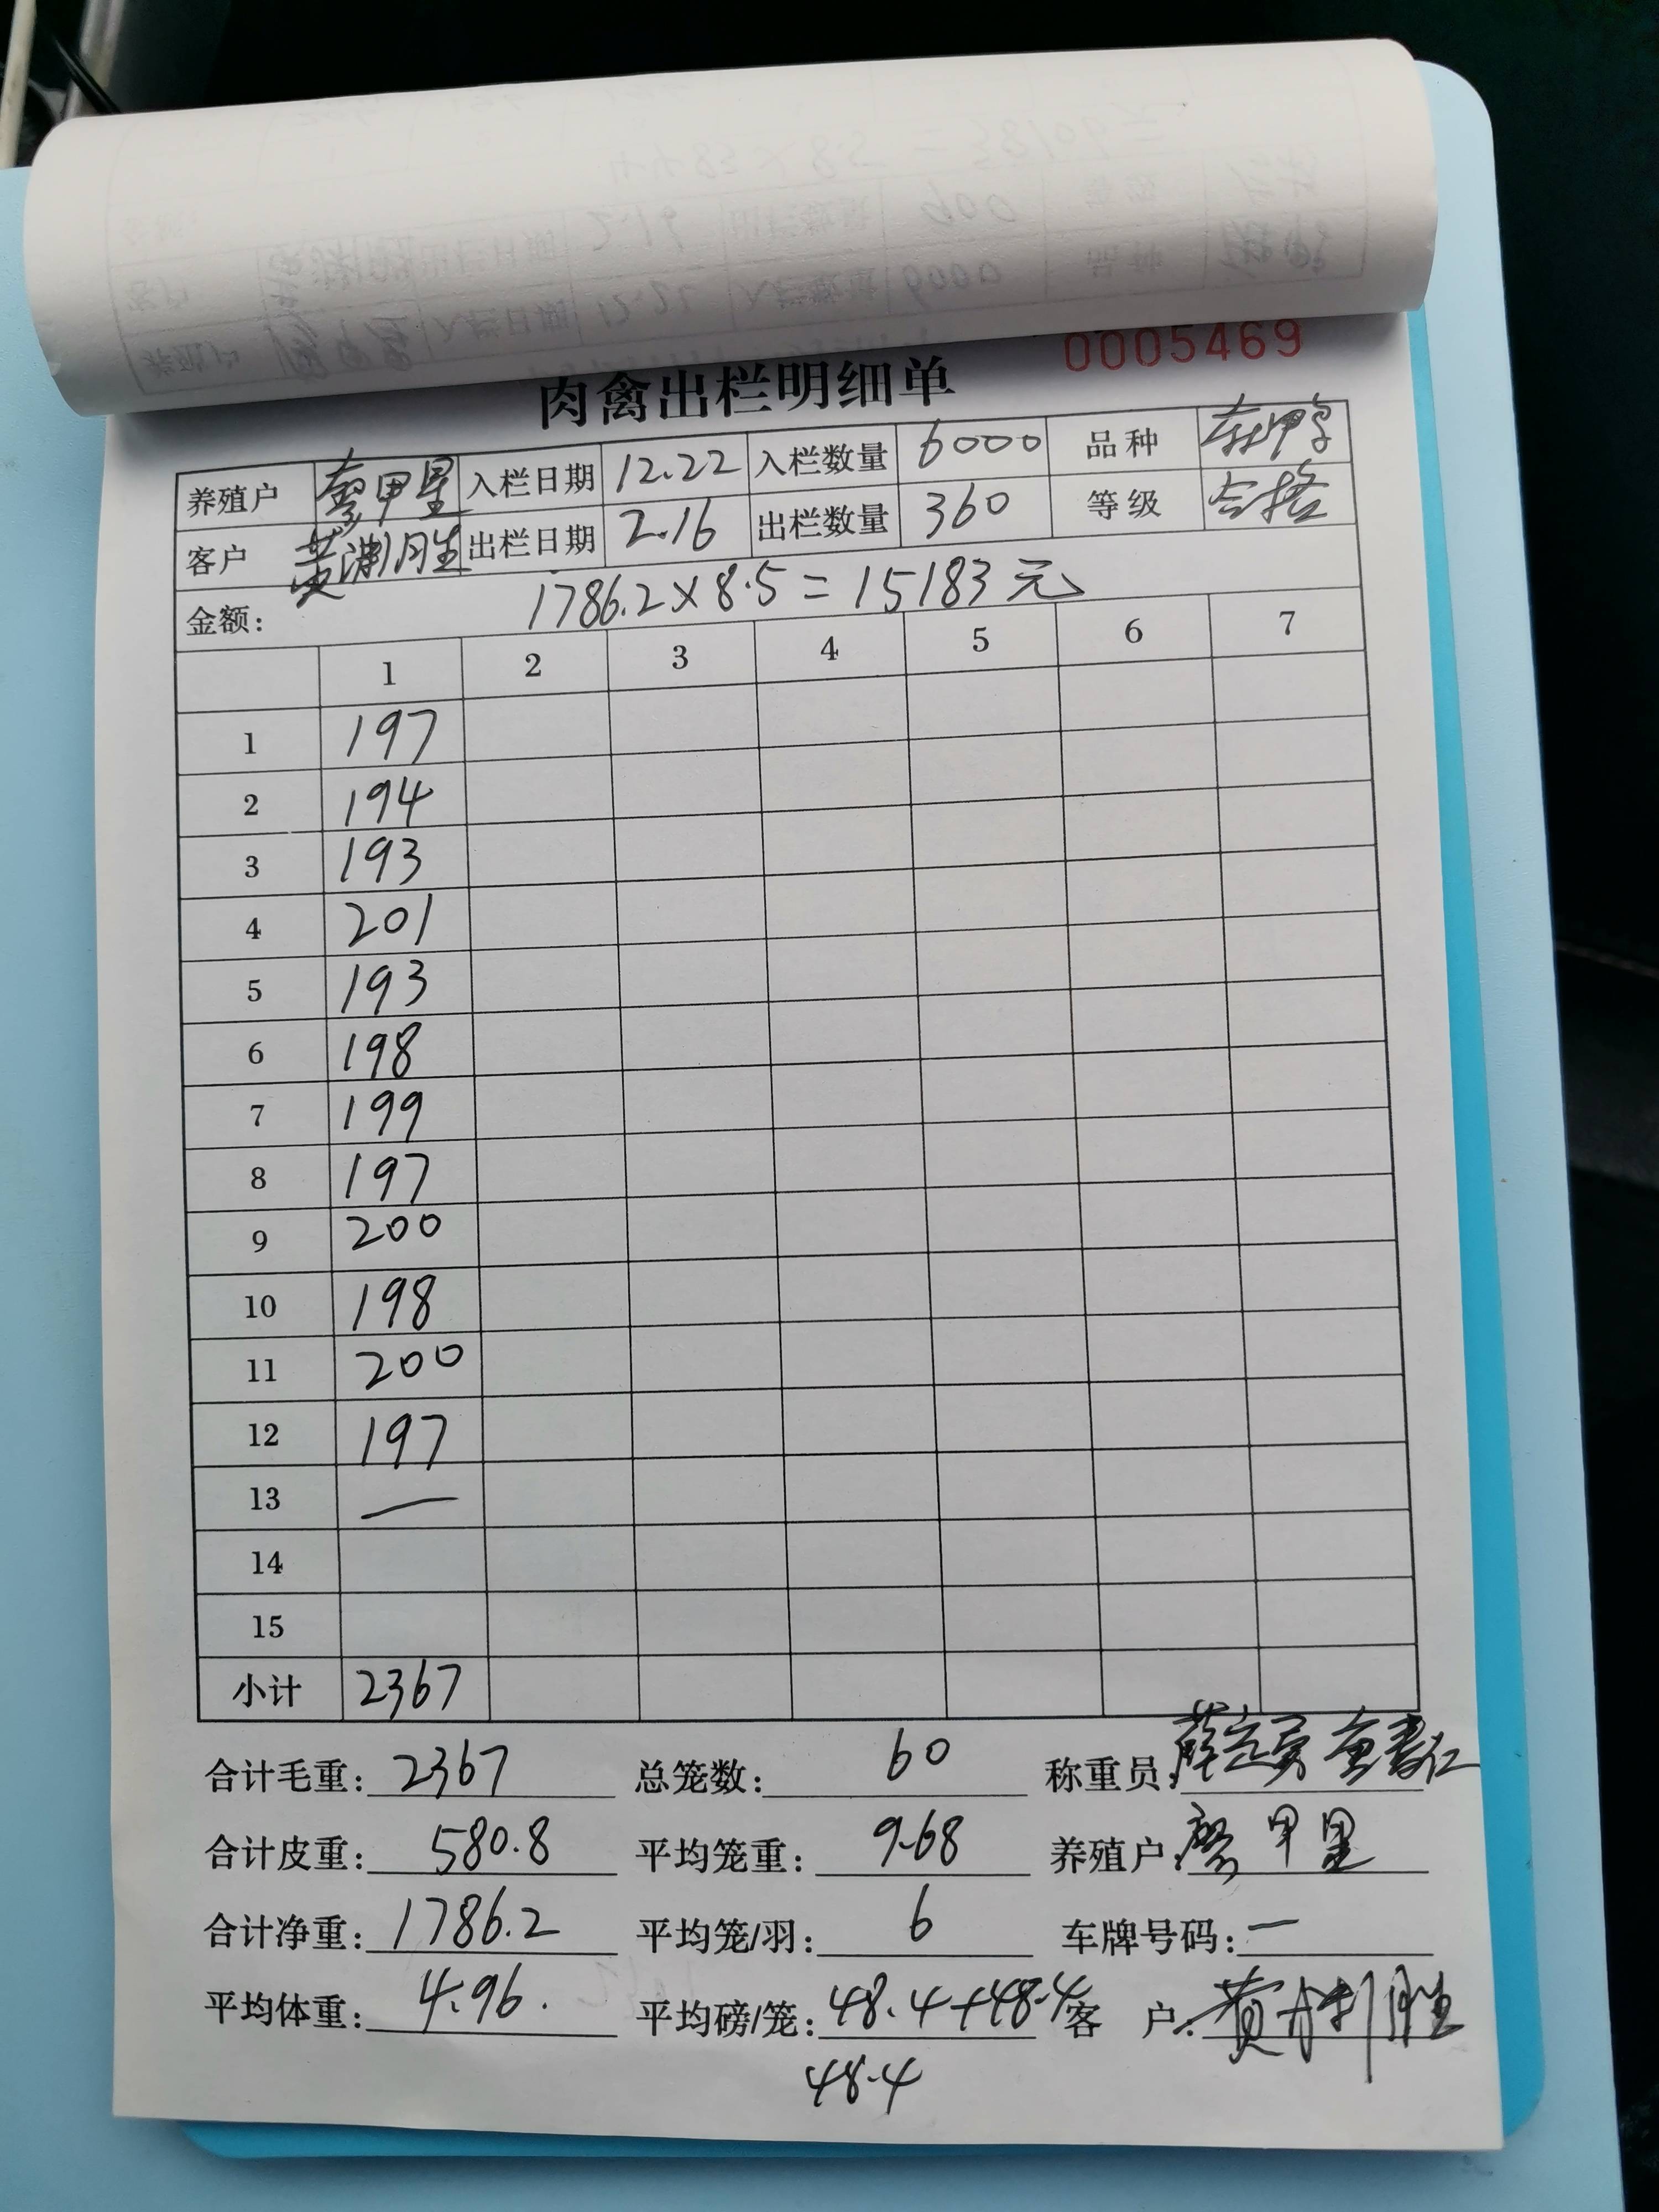 0005469
肉禽出栏明细单
养殖户 甲星 入栏日期 12.22 入栏数量 6000 品种
客户 胜 出栏日期 2.16 出栏数量 360 等级 合格
金额: 1786.2×8.5=15183元
1 2 3 4 5 6 7
1 197
2 194
3 193
4 201
5 193
6 198
7 199
8 197
9 200
10 198
11 200
12 197
13 —
14
15
小计 2367
合计毛重: 2367 总笼数: 60 称重员:
合计皮重: 580.8 平均笼重: 9.68 养殖户: 甲星
合计净重: 1786.2 平均笼/羽: 6 车牌号码: —
平均体重: 4.96. 平均磅/笼: 48.4+48.4 客户: 黄 胜
48.4